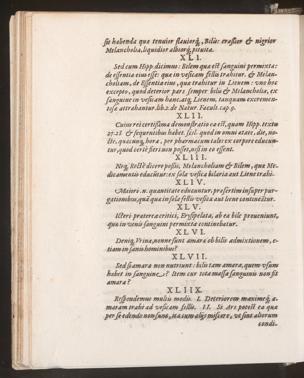 sic habenda que tenuior flauiorq́, Bilis: crasiior & nigrior
Melancholia, liquidior albiorq́, pituita.
XLI.
Sed cum Hipp dicimus: Bilem qua est sanguini permixta:
de essentia eius esse: qua in vesicam fellis trahitur. & Melan-
choliam, de Essentia eius, qua trahitur in Lienem: vno hoc
excepto, quod deterior pars semper bilis & Melancholia, ex
sanguine in vesicam hanc atq́, Lienem, tanquam excremen-
titia attrahantur. lib. 2. de Natur. Facult. cap 9.
XLII.
Cuius rei certisima demonstratio ea est, quam Hipp. textu
27. 28 & sequentibus habet. scil. quod in omni ætate, die, no-
cte, quacunq́, hora, per pharmacum tales ex corpore educun-
tur, quod certè fieri non posset, nisi in eo essent.
XLIII.
Neq́, Rectè dicere possis, Melancholiam & Bilem, quæ Me-
dicamentis educūtur: ex sola vesica bilaria aut Liene trahi.
XLIV.
Maiori .n. quantitate educuntur, præsertim in super pur-
gationibus, quā qua in sola fellis vesica aut liene continētur.
XLV.
Icteri præterea critici, Erysipelata, ab ea bile proueniunt,
qua in venis sanguini permixta continebatur.
XLVI.
Deniq́, Vrina, nonne sunt amara ob bilis admixtionem, e-
tiam in sanis hominibus?
XLVII.
Sed si amara non nutriunt: bilis tam amara, quem vsum
habet in sanguine.? Item cur tota massa sanguinis non fit
amara?
XLIIX.
Respondemus multis modis. I. Deteriorem maximeq́, a-
maram trahi ad vesicam fellis. II. Si Ars potest ea quæ
per se edendo non sunt, ita cum alijs miscere, vt sint alborum
condi-